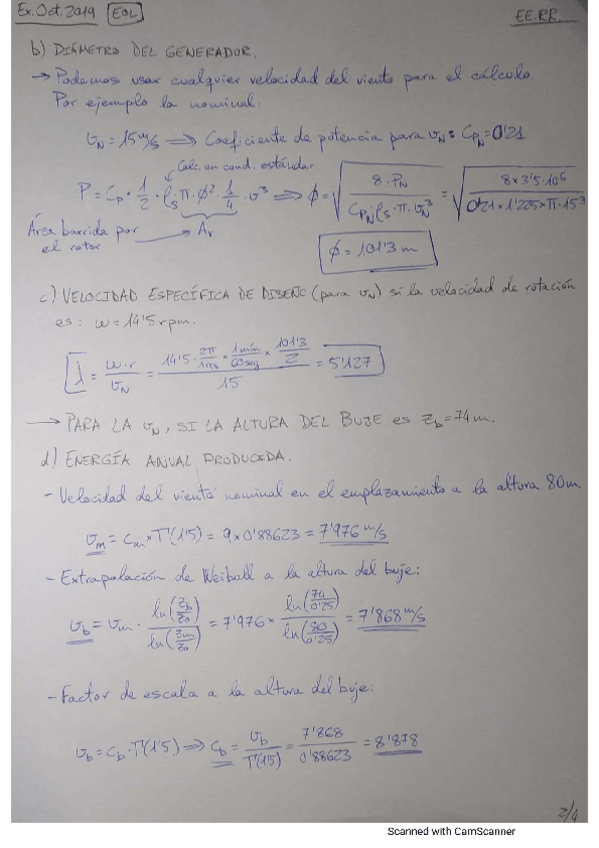 Ex.Oct.2019 EOL
EE.RR.
b) DIÁMETRO DEL GENERADOR.
→ Podemos usar cualquier velocidad del viento para el cálculo.
Por ejemplo la nominal:
υN = 15 m/s ⟹ Coeficiente de potencia para υN: CpN = 0'21
Calc. en cond. estándar
P = Cp · 1/2 · ρs · π · ϕ² · 1/4 · υ³ ⟹ ϕ = √(8·PN / (CpN·ρs·π·υN³)) = √(8×3'5·10⁶ / (0'21×1'225×π·15³))
Área barrida por el rotor → Ar
ϕ = 101'3 m
c) VELOCIDAD ESPECÍFICA DE DISEÑO (para υN) si la velocidad de rotación
es: ω = 14'5 rpm.
λ = ω·r / υN = (14'5 · 2π/1rev × 1min/60seg × 101'3/2) / 15 = 5'127
→ PARA LA υN, SI LA ALTURA DEL BUJE es Zb = 74 m.
d) ENERGÍA ANUAL PRODUCIDA.
- Velocidad del viento nominal en el emplazamiento a la altura 80m
υm = Cm × Γ(1'5) = 9 × 0'88623 = 7'976 m/s
- Extrapolación de Weiball a la altura del buje:
υb = υm · ln(Zb/Z0) / ln(Zm/Z0) = 7'976 × ln(74/0'25) / ln(80/0'25) = 7'868 m/s
- Factor de escala a la altura del buje:
υb = Cb · Γ(1'5) ⟹ Cb = υb / Γ(1'5) = 7'868 / 0'88623 = 8'878
2/4
Scanned with CamScanner